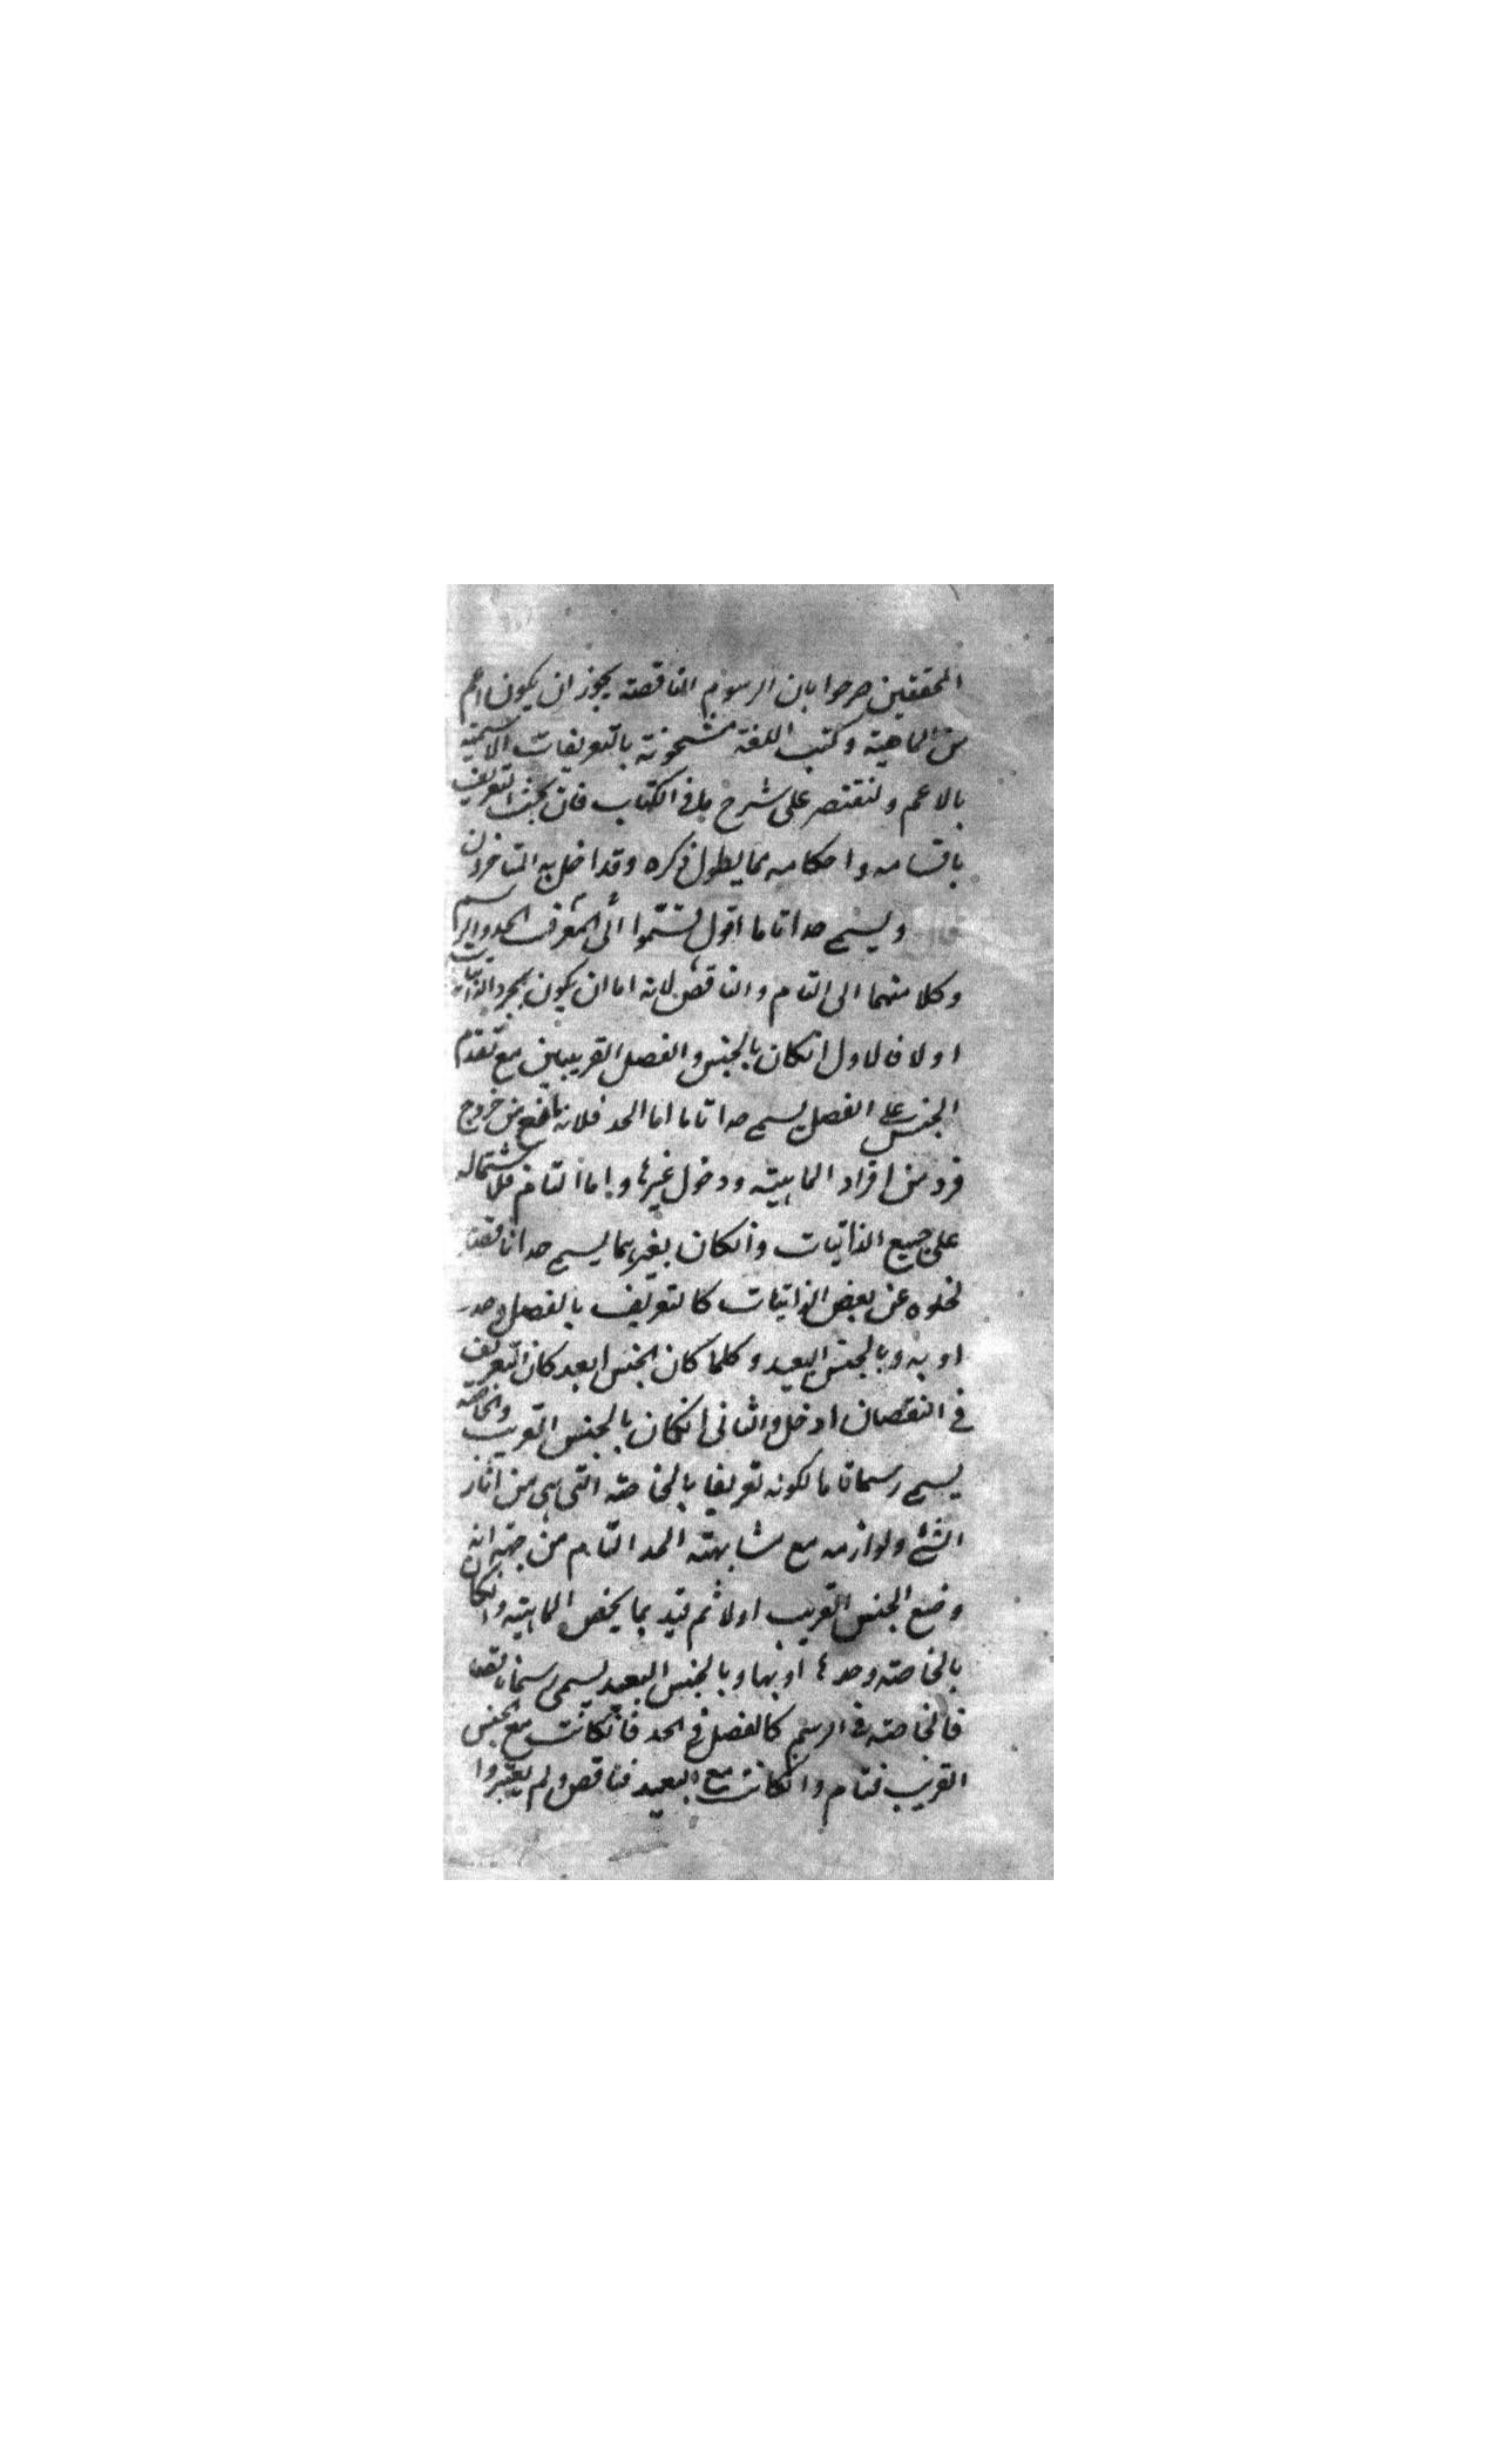 المحققين صرحوا بان الرسوم الناقصة يجوز ان يكون اعم
من الماهية وكتب اللغة مشحونة بالتعريفات الاسمية
بالاعم ولنقتصر على شرح ما فى الكتاب فان بحث التعريف
باقسامه واحكامه مما يطول ذكره وقد اخل به المتاخرون
قال ويسمى حدا تاما اقول قسّموا المعرف الى الحد والرسم
وكلا منهما الى التام والناقص لانه اما ان يكون بمجرد الذاتيات
اولا فالاول انكان بالجنس والفصل القريبين مع تقدم
الجنس على الفصل يسمى حدا تاما اما الحد فلانه مانع من خروج
فرد من افراد الماهية ودخول غيرها واما التام فلاشتماله
على جميع الذاتيات وانكان بغيرهما يسمى حدا ناقصا
لخلوه عن بعض الذاتيات كالتعريف بالفصل وحده
او به وبالجنس البعيد وكلما كان الجنس ابعد كان التعريف
فى النقصان ادخل والثانى انكان بالجنس القريب والخاصة
يسمى رسما تاما لكونه تعريفا بالخاصة التى هى من اثار
الشئ ولوازمه مع مشابهته الحد التام من جهة انه
وضع الجنس القريب اولا ثم قيد بما يخص الماهية وانكان
بالخاصة وحدها او بها وبالجنس البعيد يسمى رسما ناقصا
فالخاصة فى الرسم كالفصل فى الحد فانكانت مع الجنس
القريب فتام وانكانت مع البعيد فناقص ولم يعتبروا